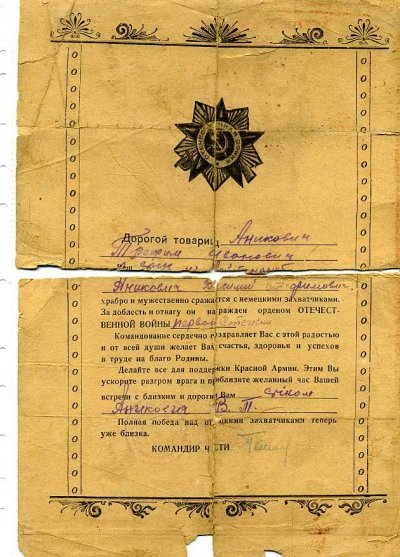 Дорогой товарищ Аникович
Трофим Иванович
Ваш сын
Аникович Трофимович
храбро и мужественно сража тся с немецкими захватчиками.
За доблесть и отвагу он на ражден орденом ОТЕЧЕСТ-
ВЕННОЙ ВОЙНЫ первой степени
Командование сердечно п здравляет Вас с этой радостью
и от всей души желает Вам счастья, здоровья и успехов
в труде на благо Родины.
Делайте все для поддер ки Красной Армии. Этим Вы
ускорите разгром врага и приблизите желанный час Вашей
встречи с близким и дорогим Вам сыном
Аникович В. Т.
Полная победа над н цкими захватчиками теперь
уже близка.
КОМАНДИР Ч СТИ